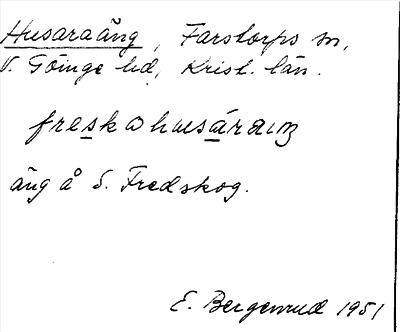 Husaraäng, Farstorps sn,
V. Göinge hd, Krist. län.
freskahusáraɩŋ
äng å S. Fredskog.
E. Bergenrud 1951